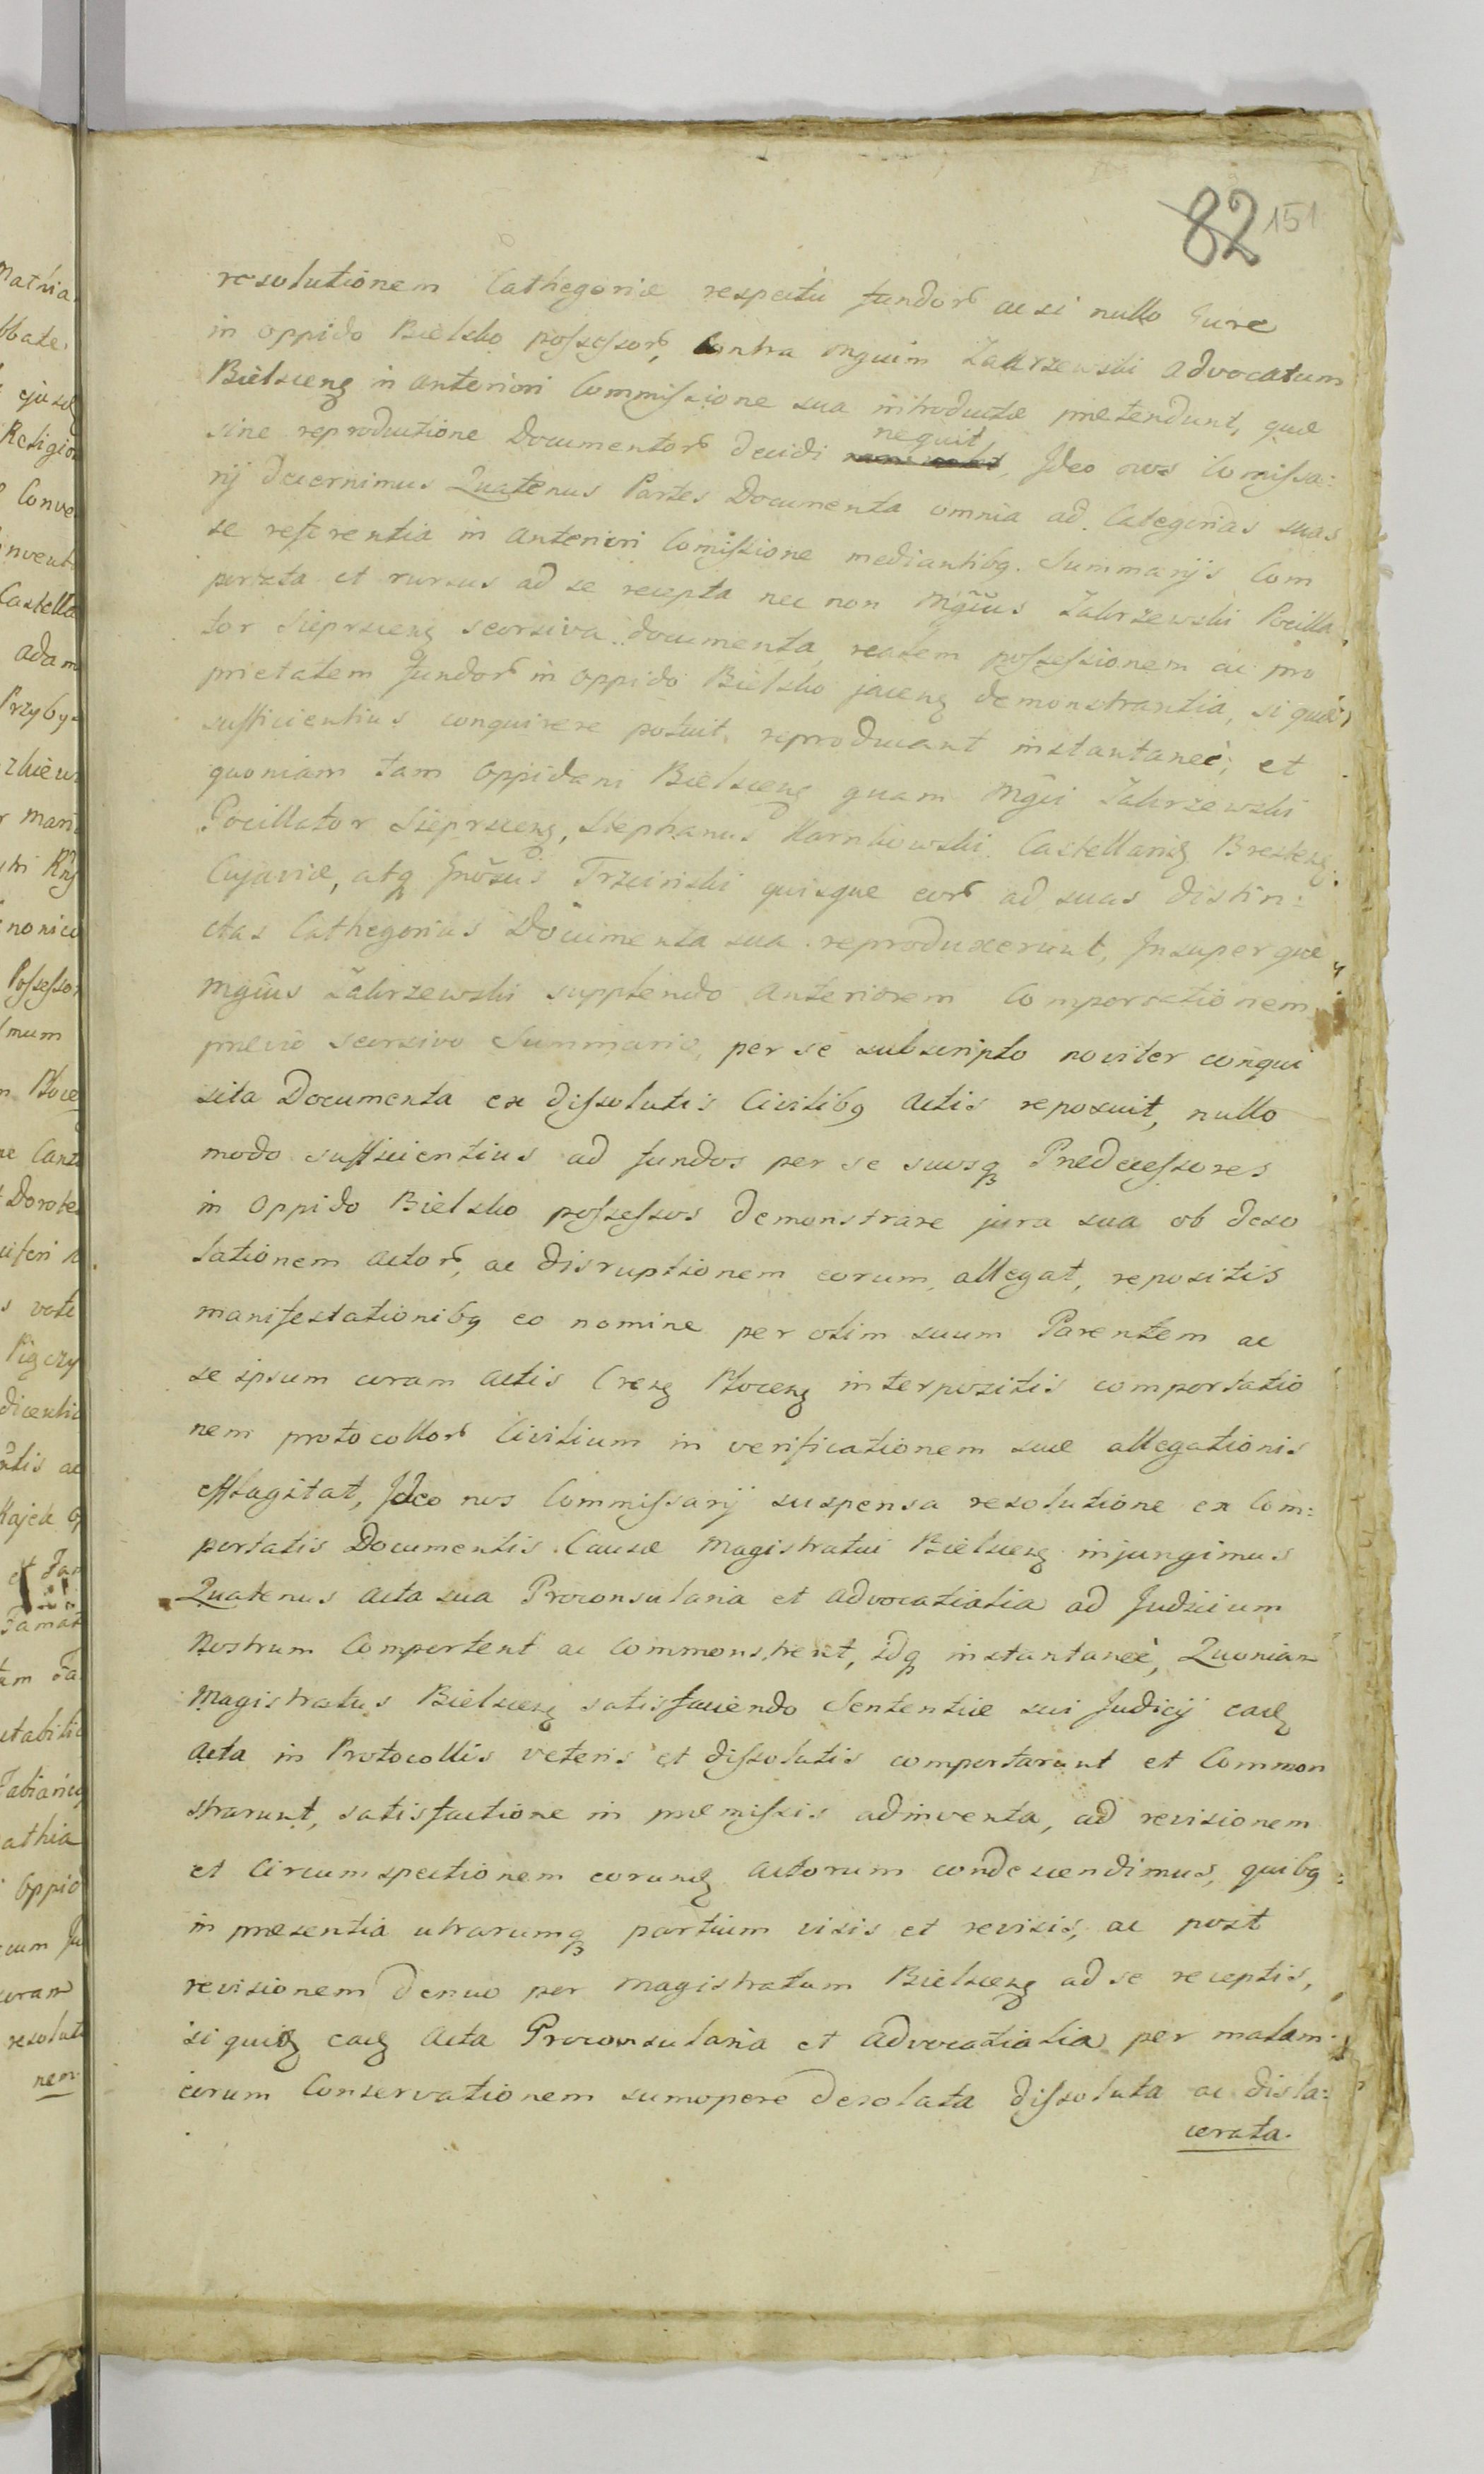 82 151
resolutionem Cathegoriæ respectu fundor. acsi nullo Jure
in oppido Bielsko possessor, contra Mgcum Zakrzewski advocatum
Bielscens in anteriori Commissione sua introductæ prætendunt, quæ
sine reproductione Documentor. decidi nequit, Ideo nos Comissa:
rij decernimus Quatenus Partes Documenta omnia ad Categorias suas
se referentia in anteriori Comissione mediantibg. Summarijs Com
portata et rursus ad se recepta nec non Mgcus Zakrzewski Pocilla
tor Sieprscens seorsiva documenta, realem possessionem ac pro
prietatem fundor. in oppido Bielsko jacens demonstrantia, si quæ
sufficientius conquirere potuit, reproducant instantaneè; et
quoniam tam oppidani Bielscens quam Mgci Zakrzewski
Pocillator Sieprscens, Stephanus Karnkowski Castellanis Brestens
Cujaviæ, atq Gnosus Trzcinski quisque eor. ad suas distin:
ctas Cathegorias Documenta sua reproduxerunt, Insuperque
Mgcus Zakrzewski supplendo anteriorem Comportationem
prævio seorsivo Summario, per se subscripto noviter conqui
sita Documenta ex dissolutis Civilibg actis reposuit, nullo
modo sufficientius ad fundos per se suosq Prædecessores
in oppido Bielsko possessos demonstrare jura sua ob deso
lationem actor, ac disruptionem eorum, allegat, repositis
manifestationibg eo nomine per olim suum Parentem ac
se ipsum coram actis Crens Plocens interpositis comportatio
nem protocollor. Civilium in verificationem suæ allegationis
efflagitat, Ideo nos Commissarij suspensa resolutione ex Com:
portatis Documentis Causæ Magistratui Bielscens injungimus
Quatenus acta sua Proconsularia et advocatialia ad Judicium
Nostrum Comportent ac Commonstrent, idq instantaneè, Quoniam
Magistratus Bielscens satisfaciendo Sententiæ sui Judicij eads
acta in Protocollis veteris et dissolutis comportarunt et Common
strarunt, satisfactione in præmissis adinventa, ad revisionem
et Circumspectionem corunds actorum condescendimus, quibg
in præsentia utrarumq partium visis et revisis, ac post
revisionem denuo per Magistratum Bielscens ad se receptis,
siquids eads acta Proconsularia et advocatialia per malam
eorum Conservationem sumopere desolata dissoluta ac disla:
cerata.